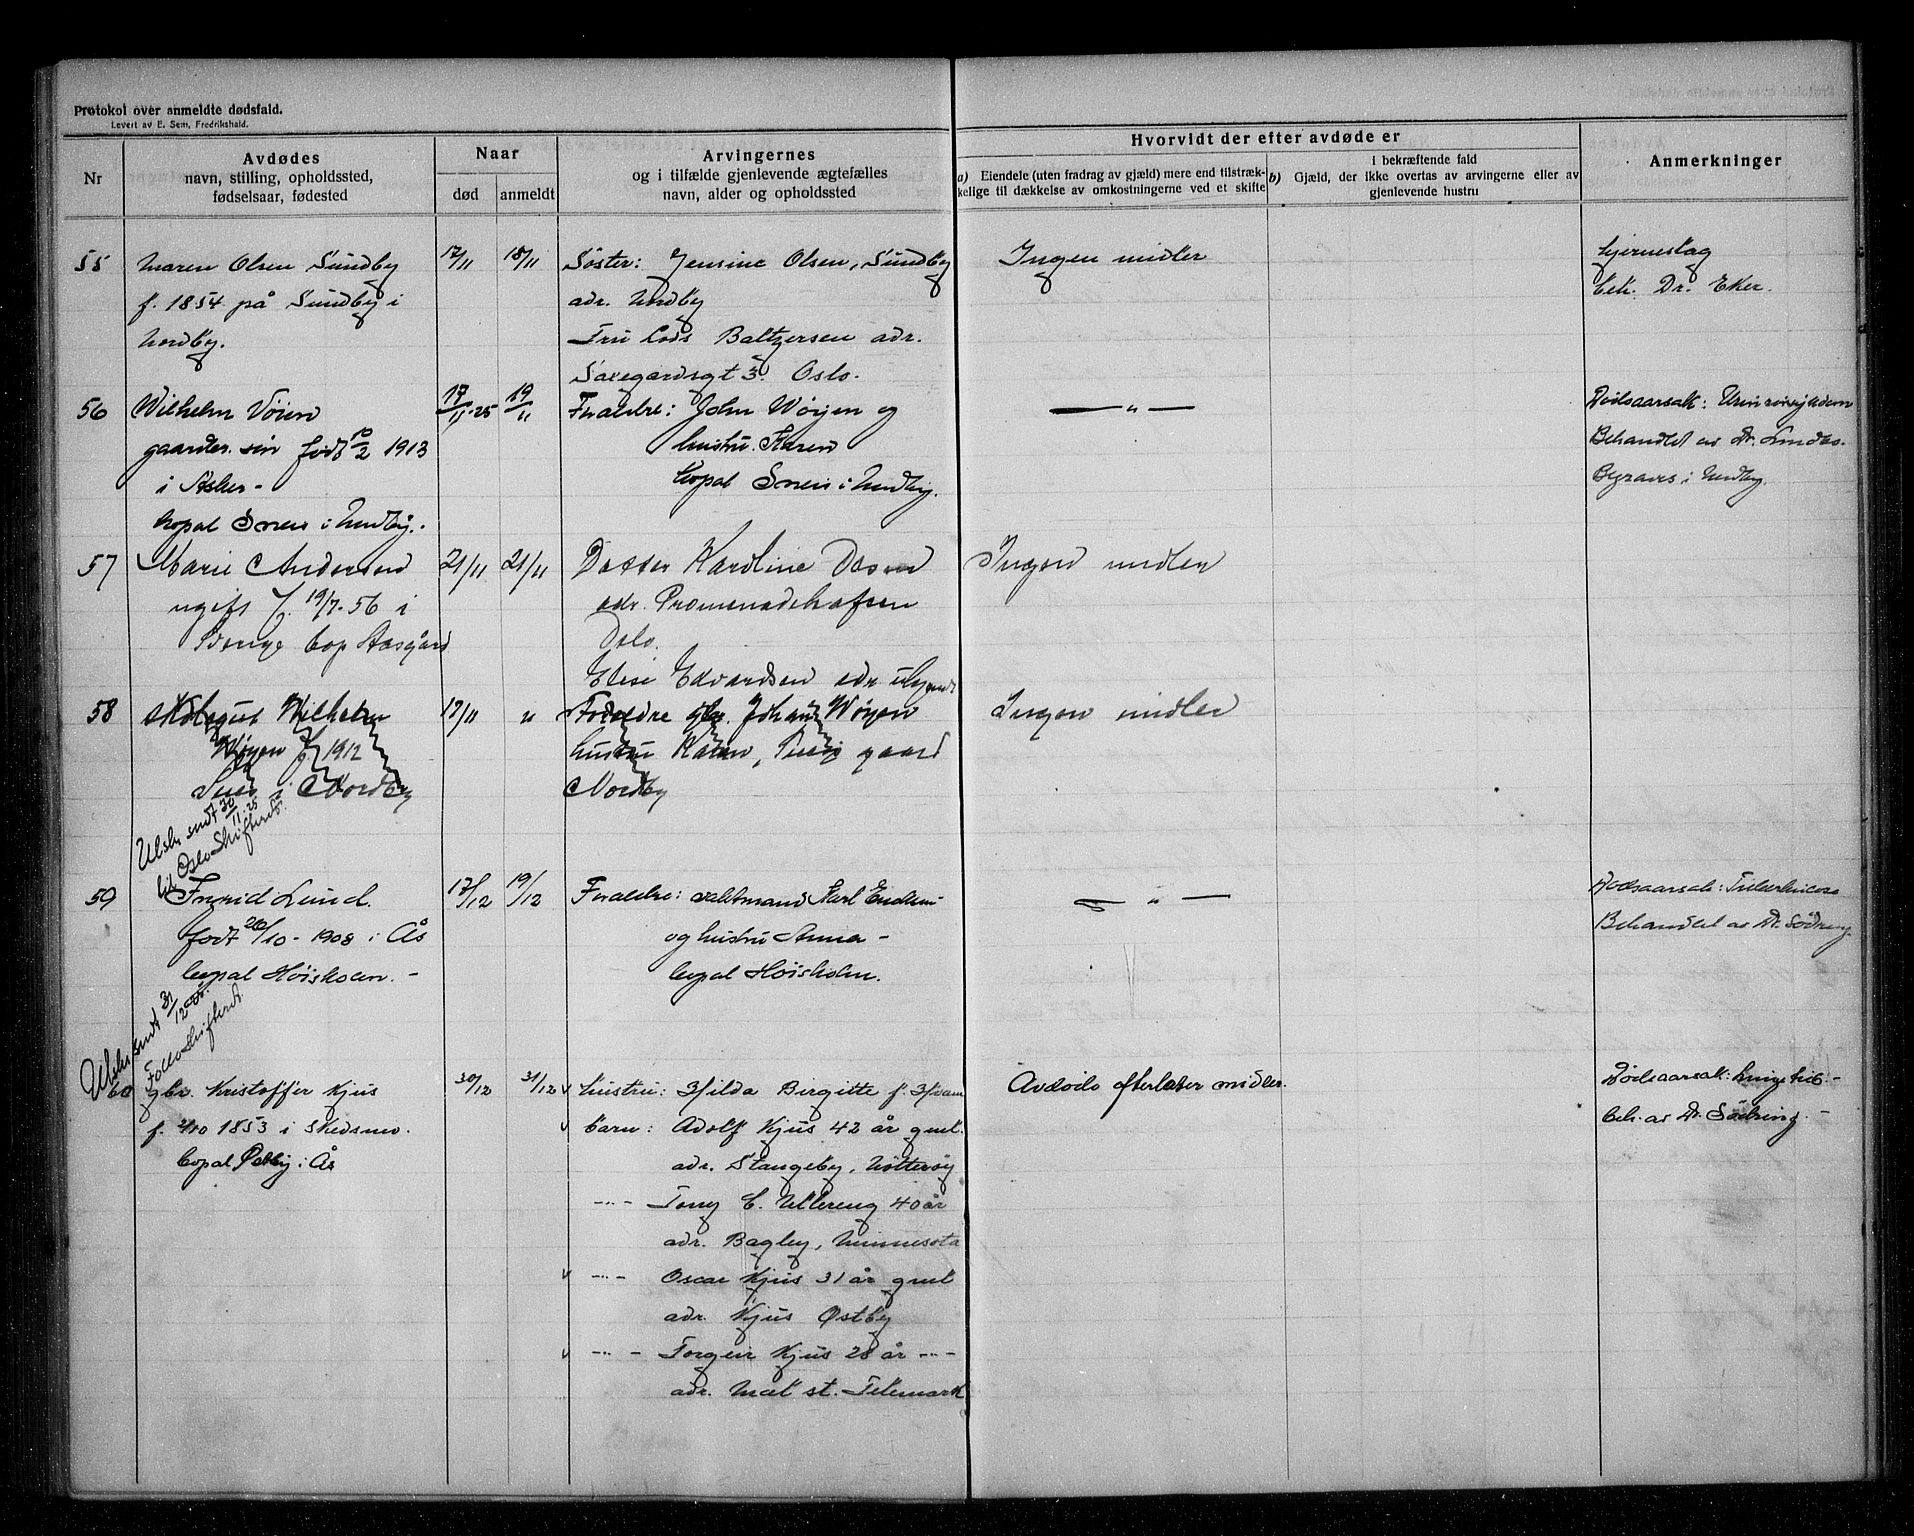 Protokol over anmeldte dødsfald.
Levert av E. Sem, Fredrikshald.
Nr
Avdødes
navn, stilling, opholdssted,
fødselsaar, fødested
Naar
død
anmeldt
Arvingernes
og i tilfælde gjenlevende ægtefælles
navn, alder og opholdssted
Hvorvidt der efter avdøde er
a) Eiendele (uten fradrag av gjæld) mere end tilstræk-
kelige til dækkelse av omkostningerne ved et skifte
i bekræftende fald
b) Gjæld, der ikke overtas av arvingerne eller av
gjenlevende hustru
Anmerkninger
55
Maren Olsen Sundby
f. 1854 på Sundby i
Nordby.
17/11
18/11
Søster: Jensine Olsen, Sundby
adr. Nordby
Fru Baltzersen adr.
Saxegardsgt 3. Oslo.
Ingen midler
Hjerneslag
beh. Dr. Eker.
56
Wilhelm Vøien
gaardbr. søn født 10/2 1913
i Asker -
bopal i Nordby.
17/11-25
19/11
Foraldre: John Wøyen og
hustru Karen
bopal i Nordby.
— " —
Dødsaarsak:
Behandlet av Dr.
Begraves i Nordby.
57
Marie Andersen
ugift f. 19/7-56 i
Sverige bop Aasgård
21/11
21/11
Karoline
adr. Promenadehafsen
Oslo.
Elise Edvardsen adr
Ingen midler
58
Skolegut Wilhelm
Wøyen f. 1912
i Nordby
17/11
"
Foraldre gbr. Johan Wøyen
hustru Karen, gaard
Nordby
Ingen midler
Utskr. sendt 30/11.25
til Oslo Skifterett.
59
Ingrid Lund.
født 26/10-1908 i Ås
bopal Høiskolen. -
17/12
19/12
Foraldre: Karl
og hustru Anna -
bopal Høiskolen.
— " —
Dødsaarsak:
Behandlet av Dr. Södring
Utskr. sendt 31/12-25.
Follo Skifterett.
60
gbr. Kristoffer Kjus
f. 1853 i Skedsmo.
bopal i Ås
30/12
31/12
v hustru: Hilda Birgitte f. Hvam
v barn: Adolf Kjus 42 år gml.
adr. Stangeby, Nøtterøy
--- - Tony C. Ullereng 40 år
adr. Bagley, Minnesota
v --- - Oscar Kjus 31 år gml
adr. Kjus Østby
v --- - Torgeir Kjus 28 år ---
adr. Mæl st. Telemark
Avdøde efterlater midler.
Dødsaarsak:
beh. av Dr. Södring. -